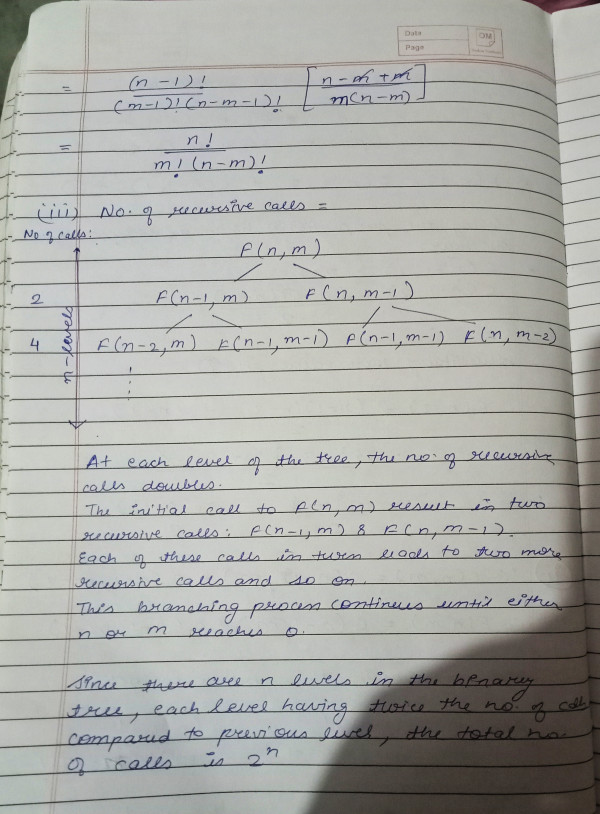 Date
Page
DM
= (n-1)! / (m-1)! (n-m-1)! [n-m+m / m(n-m)]
= n! / m! (n-m)!
(iii) No. of recursive calls =
No of calls:
F(n, m)
2 F(n-1, m) F(n, m-1)
4 F(n-2, m) F(n-1, m-1) F(n-1, m-1) F(n, m-2)
n-levels
At each level of the tree, the no. of recursive
calls doubles.
The initial call to F(n, m) result in two
recursive calls: F(n-1, m) & F(n, m-1).
Each of these calls in turn leads to two more
recursive calls and so on.
This branching process continues until either
n or m reaches 0.
Since there are n levels in the benary
tree, each level having twice the no. of call
compared to previous level, the total no.
of calls is 2ⁿ